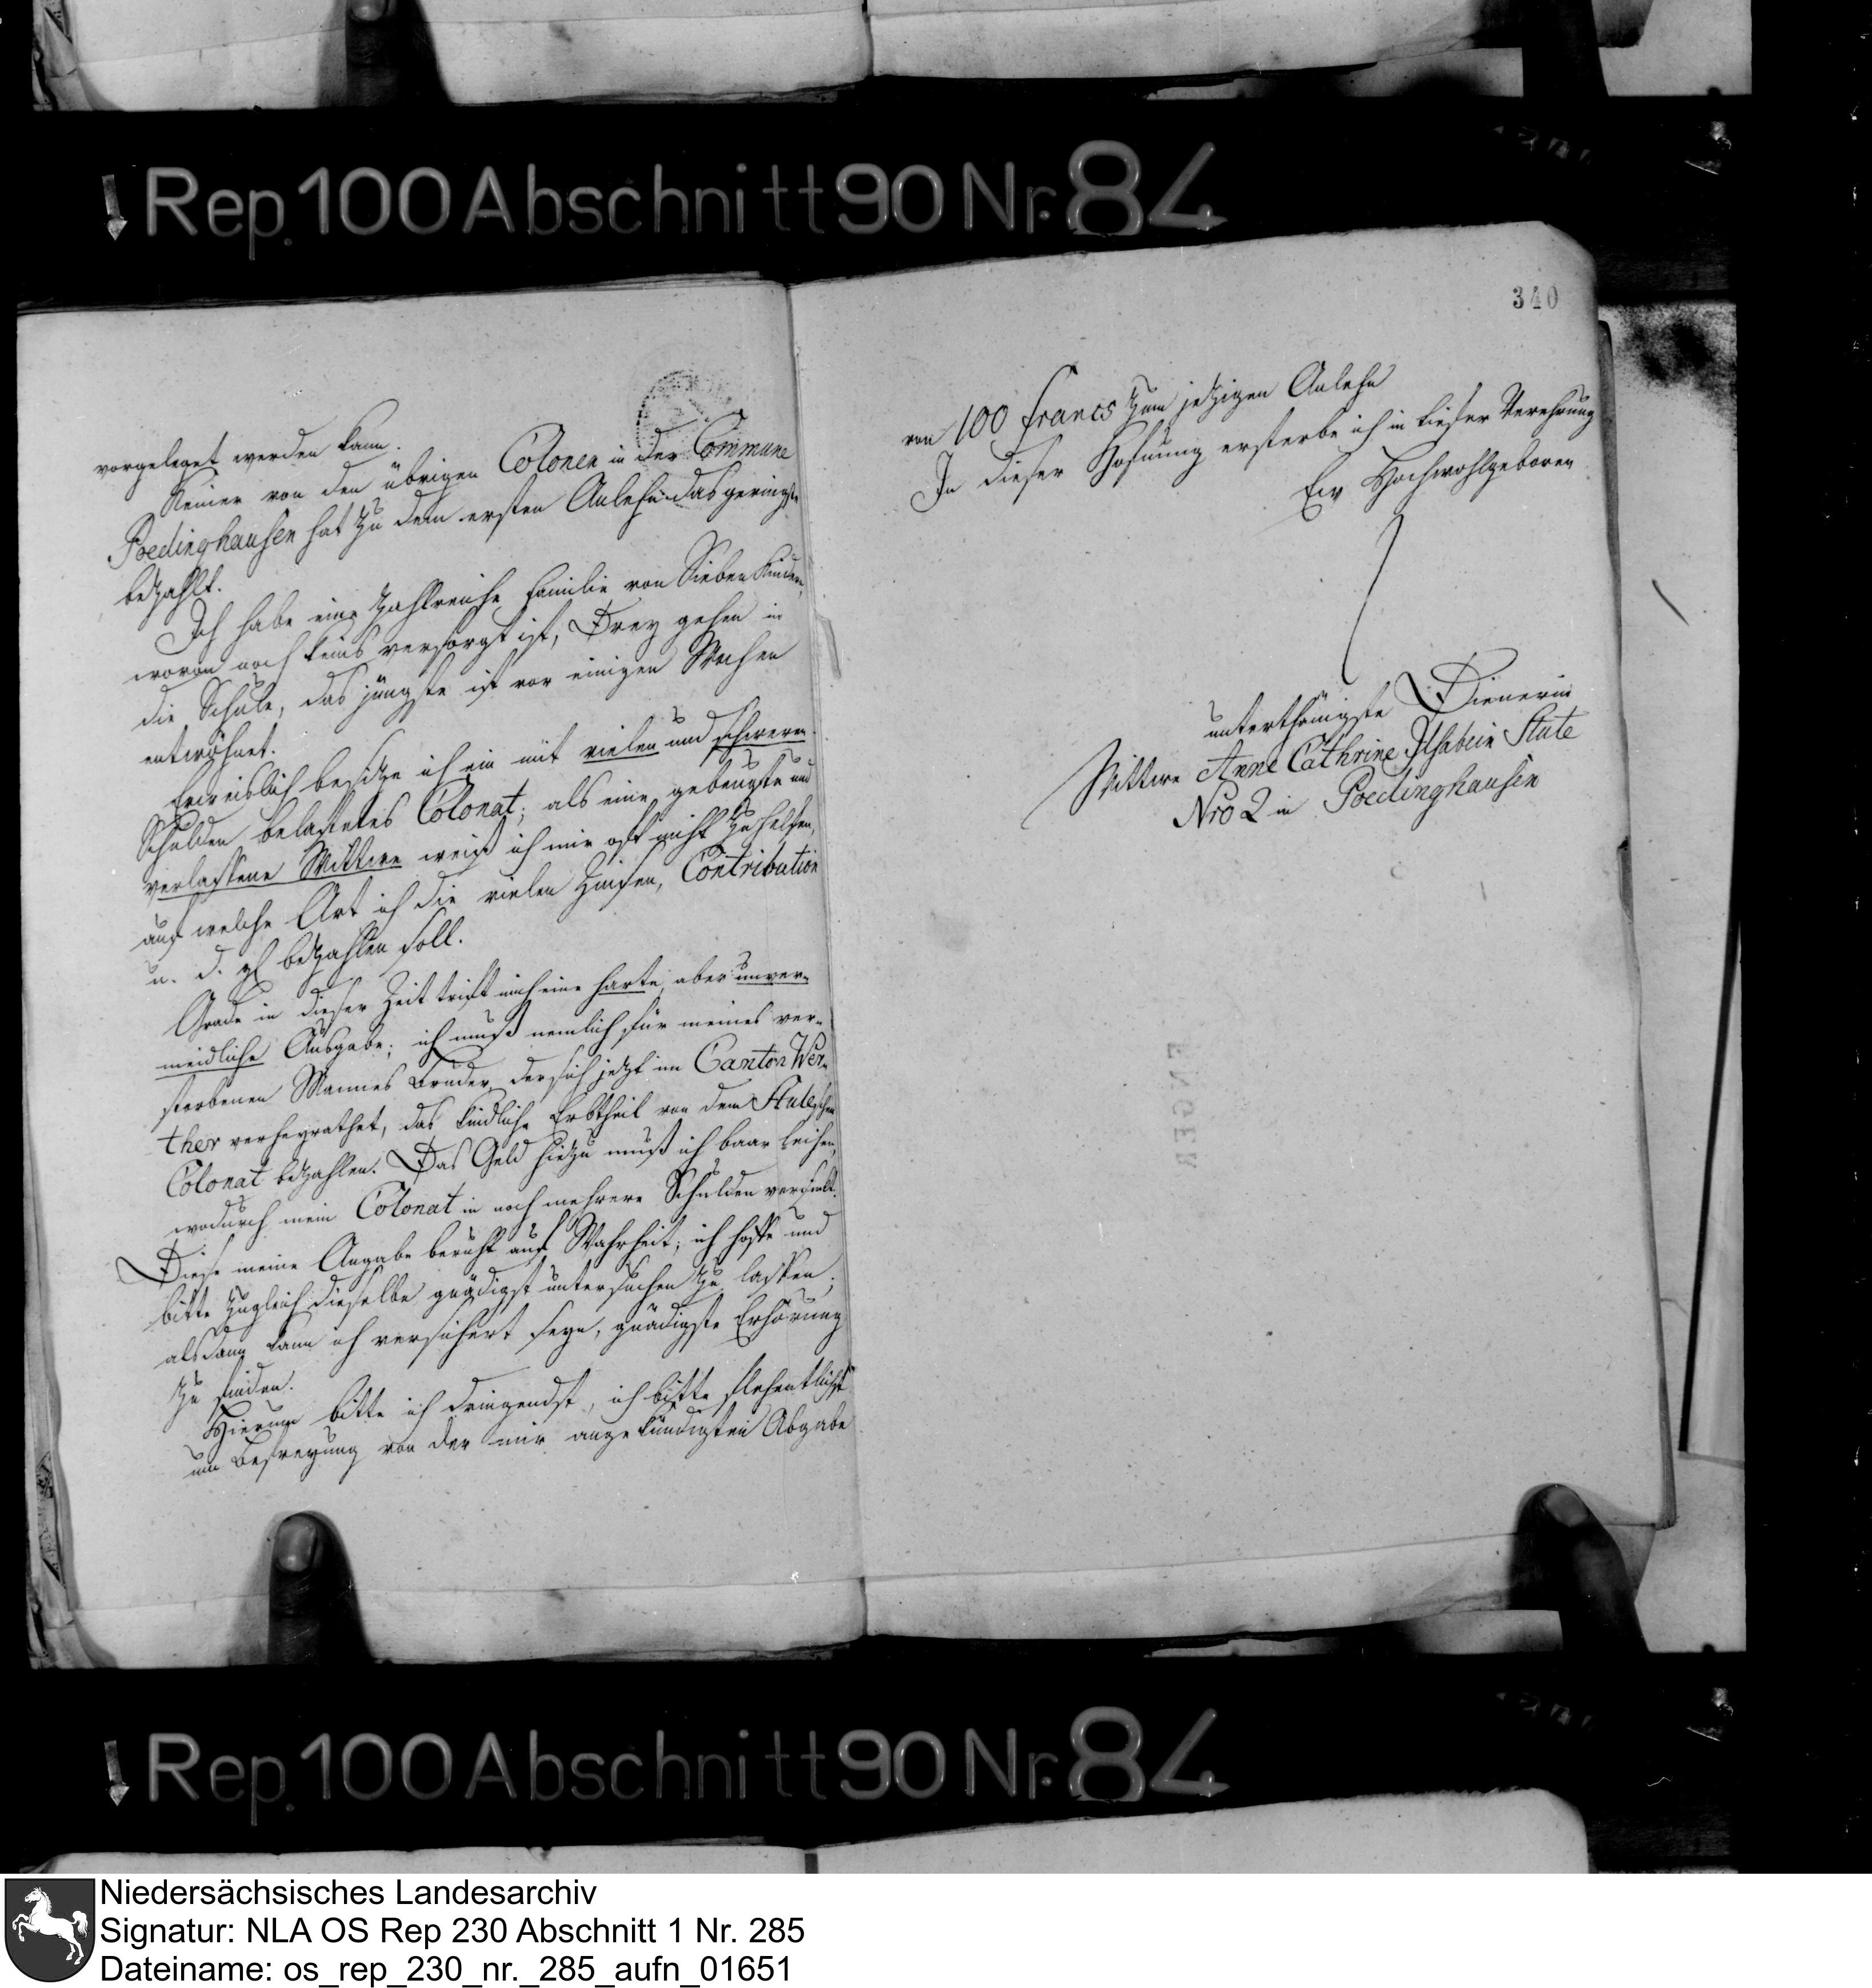 Rep. 100 Abschnitt 90 Nr. 84
vorgeleget werden kann.
Keiner von den übrigen Colonen in der Commune
Poedinghausen hat zu dem ersten Anlehn das geringste
bezahlt.
Ich habe eine zahlreiche Familie von Sieben Kindern,
wovon noch keins versorgt ist, Drey gehen in
die Schule, das jüngste ist vor einigen Wochen
entwöhnet.
Erweislich besitze ich ein mit vielen und schweren
Schulden belastetes Colonat; als eine gebeugte und
verlassene Wittwe weiß ich mir oft nicht zu helfen,
auf welche Art ich die vielen Zinsen, Contribution
u. d. gl bezahlen soll.
Grade in dieser Zeit trift mich eine harte, aber unver-
meidliche Ausgabe; ich muß nemlich für meines ver-
storbenen Mannes Bruder, der sich jetzt im Canton Wer-
ther verheyrathet, das kindliche Erbtheil von dem Stuteschen
Colonat bezahlen. Das Geld hiezu muß ich baar leihen,
wodurch mein Colonat in noch mehrere Schulden versinkt.
Diese meine Angabe beruht auf Wahrheit; ich hoffe und
bitte zugleich dieselbe gnädigst untersuchen zu lassen;
alsdann kann ich versichert seyn, gnädigste Erhörung
zu finden.
Hierum bitte ich dringendst, ich bitte flehentlichst
um Befreyung von der mir angekündigten Abgabe
340
von 100 francs zum jetzigen Anlehn
In dieser Hofnung ersterbe ich in tiefer Verehrung
Ew Hochwohlgeboren
unterthänigste Dienerin
Wittwe Anne Cathrine Ilsabein Stute
Nro 2 in Poedinghausen
Rep. 100 Abschnitt 90 Nr. 84
Niedersächsisches Landesarchiv
Signatur: NLA OS Rep 230 Abschnitt 1 Nr. 285
Dateiname: os_rep_230_nr._285_aufn_01651